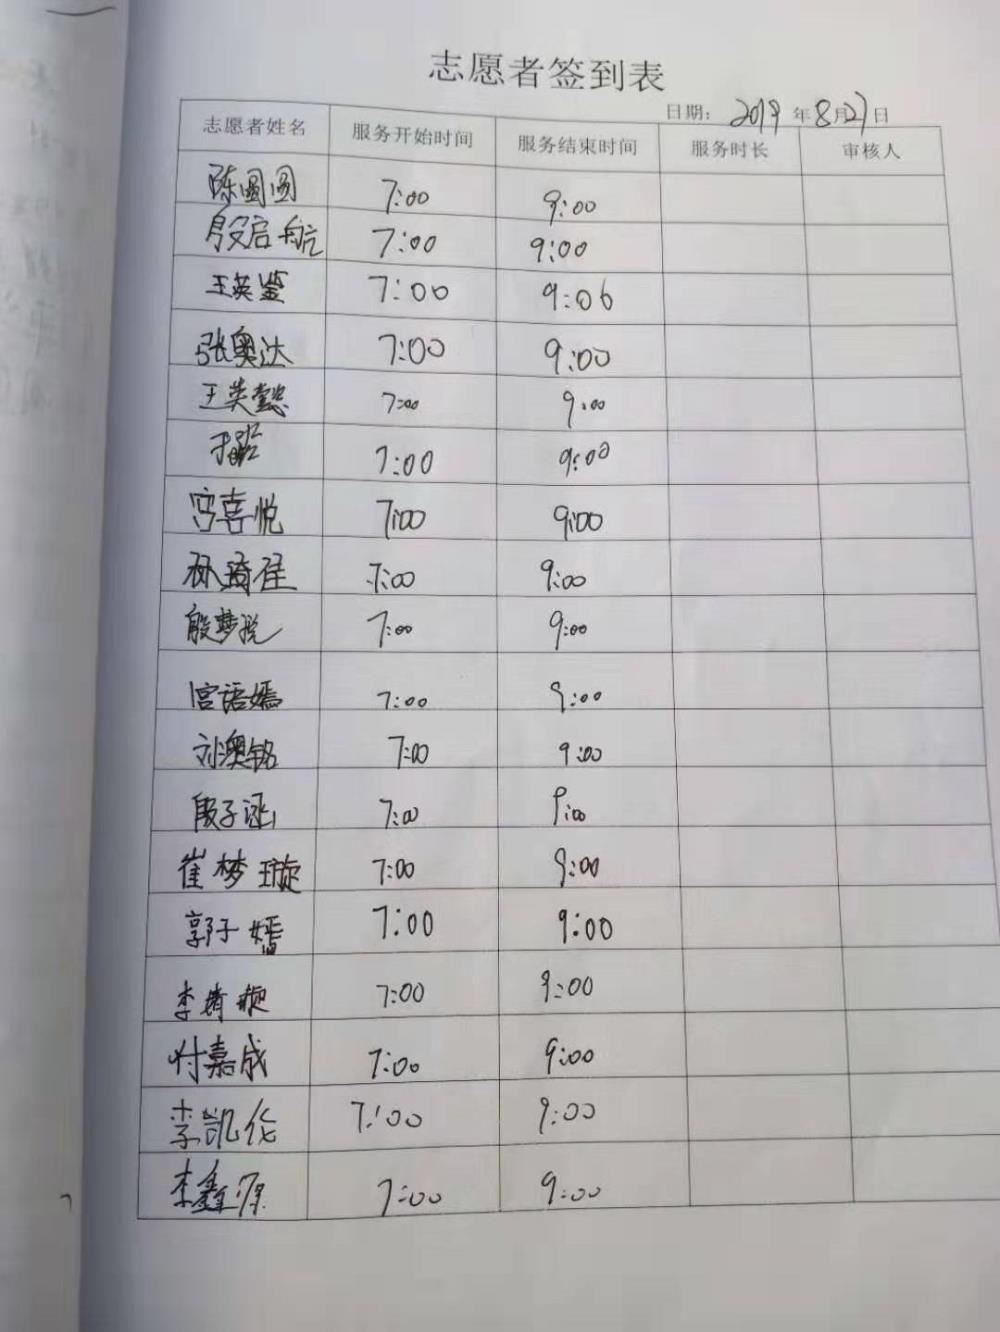 志愿者签到表
日期: 2019 年 8月21日
志愿者姓名 服务开始时间 服务结束时间 服务时长 审核人
陈圆圆 7:00 9:00
殷启航 7:00 9:00
王英鉴 7:00 9:06
张奥达 7:00 9:00
王英懿 7:00 9:00
7:00 9:00
宫喜悦 7:00 9:00
孙琦佳 7:00 9:00
殷梦悦 7:00 9:00
宫语嫣 7:00 9:00
刘澳铭 7:00 9:00
殷子涵 7:00 9:00
崔梦璇 7:00 9:00
郭子嫣 7:00 9:00
李 7:00 9:00
付嘉成 7:00 9:00
李凯伦 7:00 9:00
李鑫源 7:00 9:00